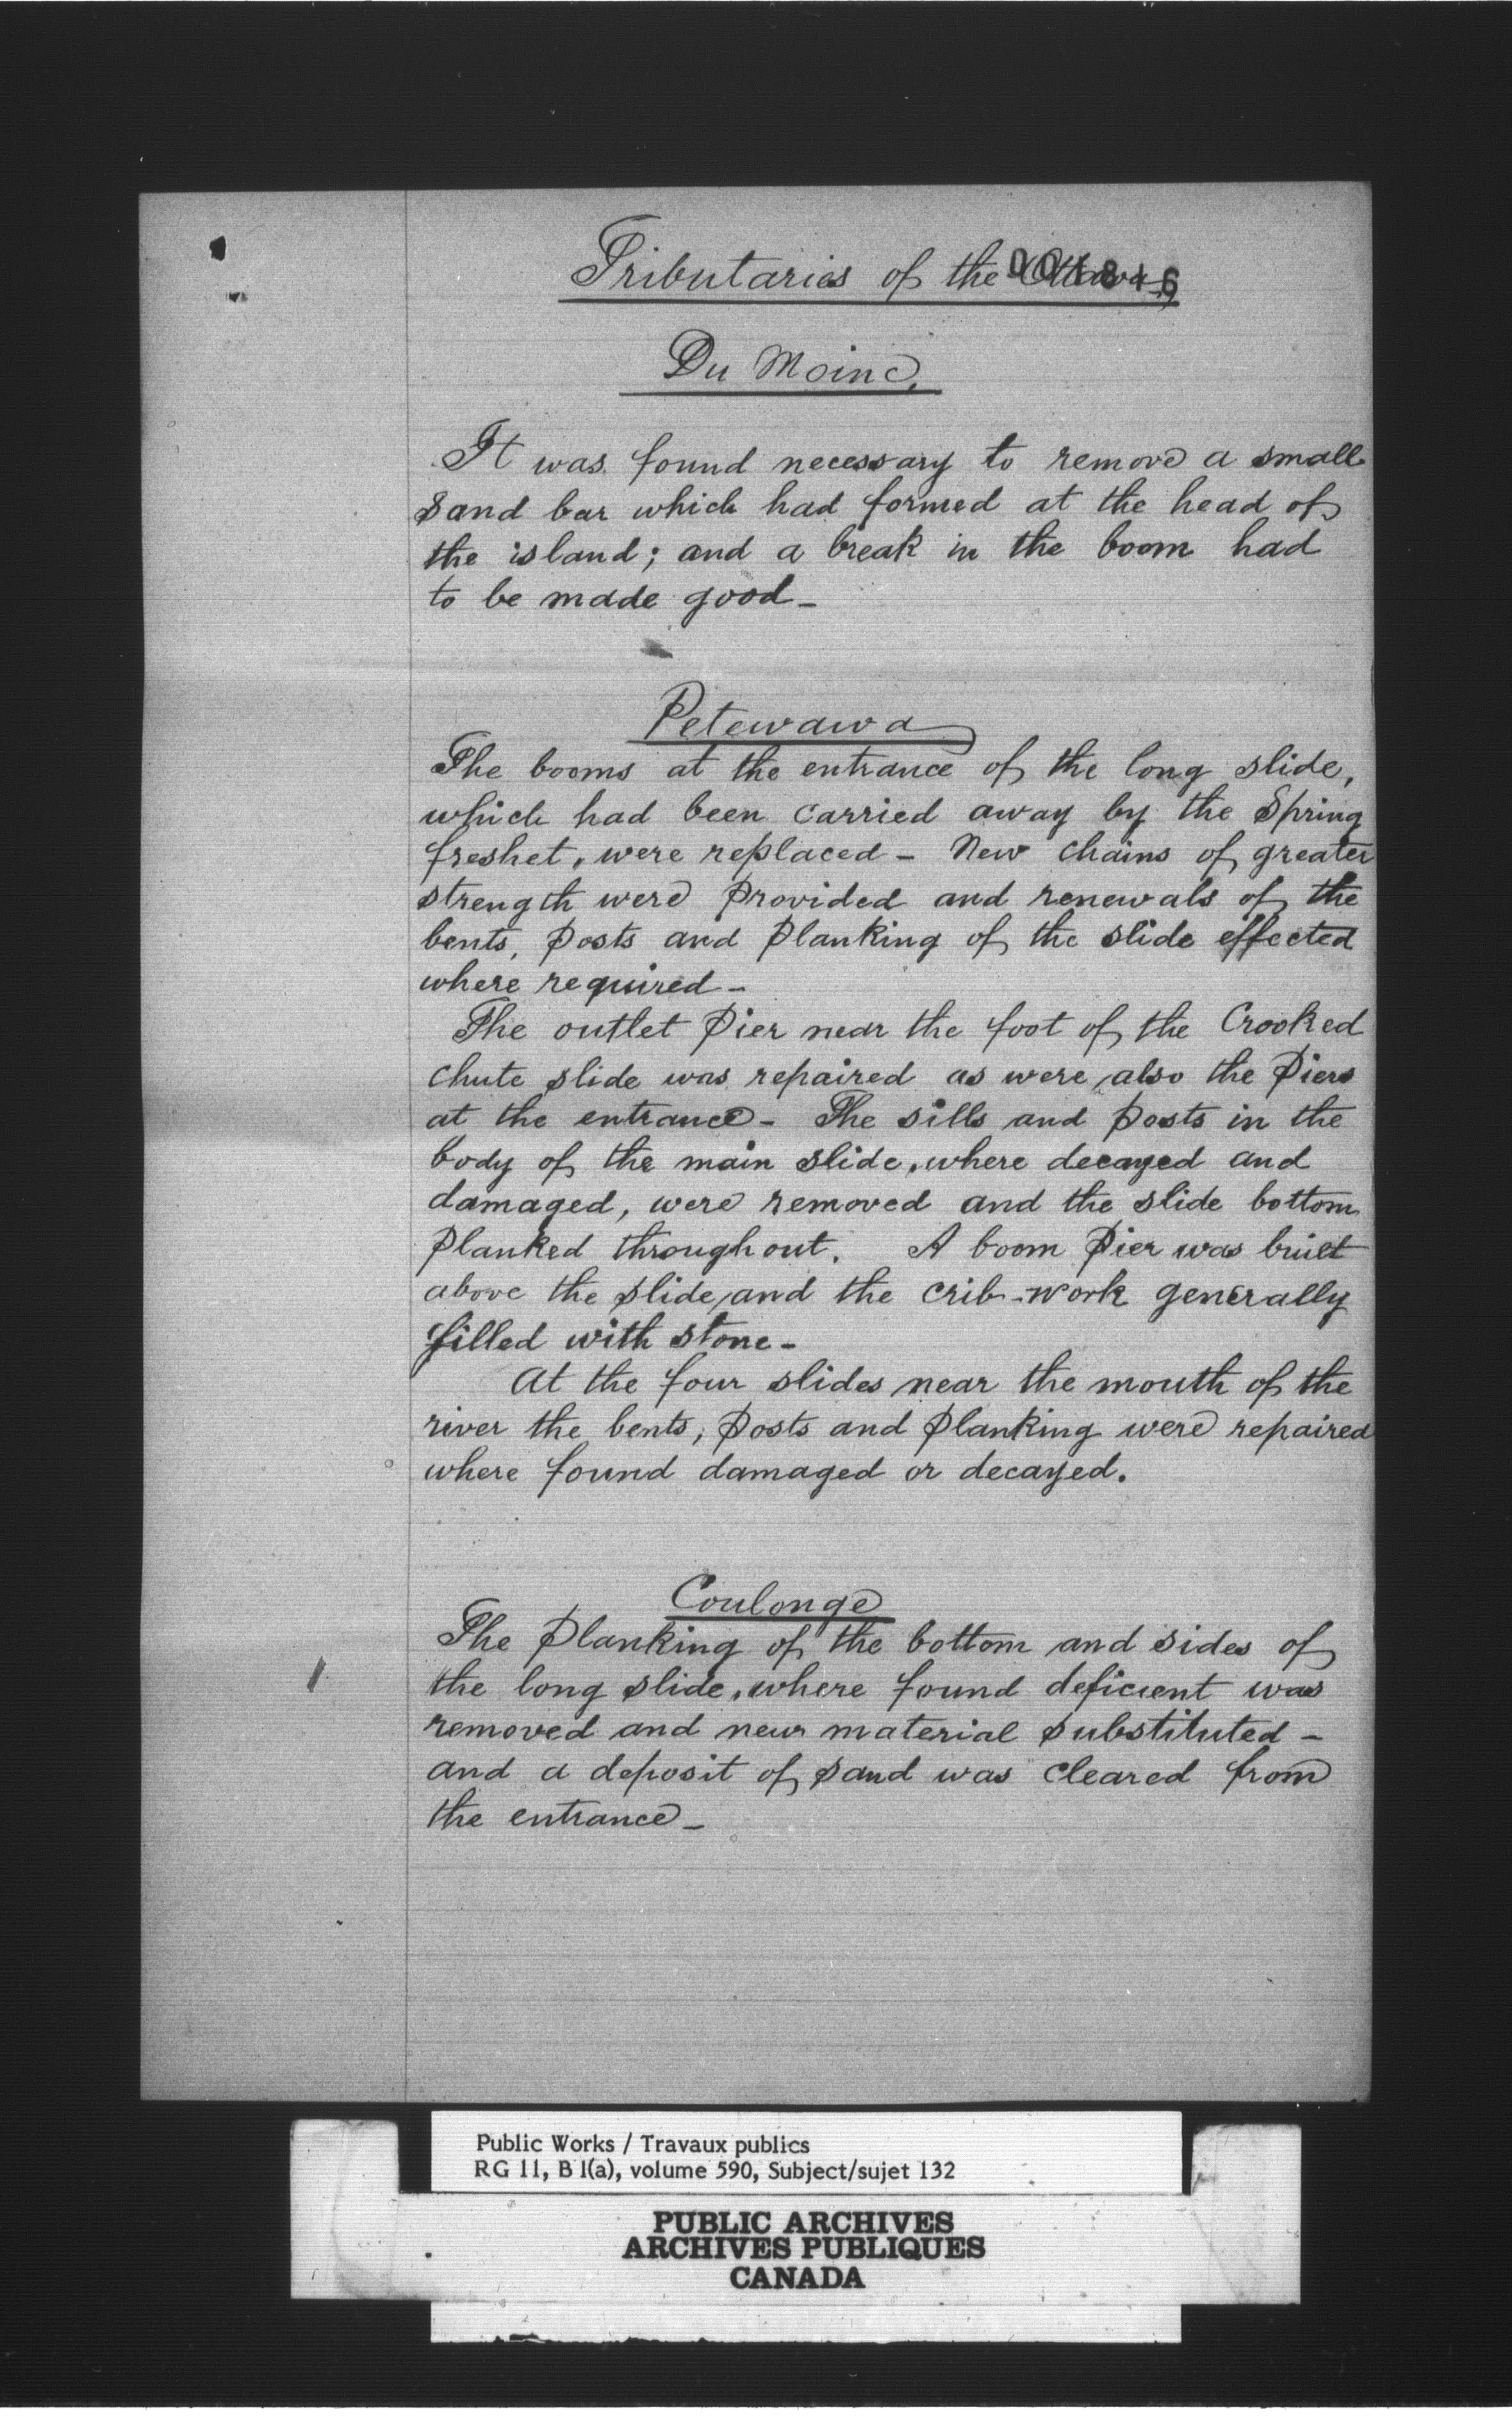 Tributaries of the Ottawa
Du Moine,
It was found necessary to remove a small
sand bar which had formed at the head of
the island; and a break in the boom had
to be made good_
Petewawa
The booms at the entrance of the long slide,
which had been carried away by the Spring
freshet, were replaced - New chains of greater
strength were provided and renewals of the
bents, posts and planking of the slide effected
where required -
The outlet Pier near the foot of the Crooked
chute slide was repaired as were also the Piers
at the entrance - The sills and posts in the
body of the main slide, where decayed and
damaged, were removed and the slide bottom
planked throughout. A boom Pier was built
above the slide, and the crib-work generally
filled with stone -
At the four slides near the mouth of the
river the bents, posts and planking were repaired
where found damaged or decayed.
Coulonge
The planking of the bottom and sides of
the long slide, where found deficient was
removed and new material substituted -
and a deposit of sand was cleared from
the entrance _
Public Works / Travaux publics
RG 11, B 1(a), volume 590, Subject/sujet 132
PUBLIC ARCHIVES
ARCHIVES PUBLIQUES
CANADA